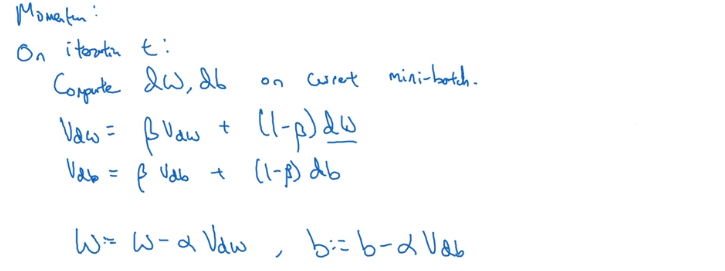 Momentum:
On iteration t:
Compute dW, db on current mini-batch.
Vdw = βVdw + (1-β)dW
Vdb = βVdb + (1-β)db
W := W - αVdw , b := b - αVdb